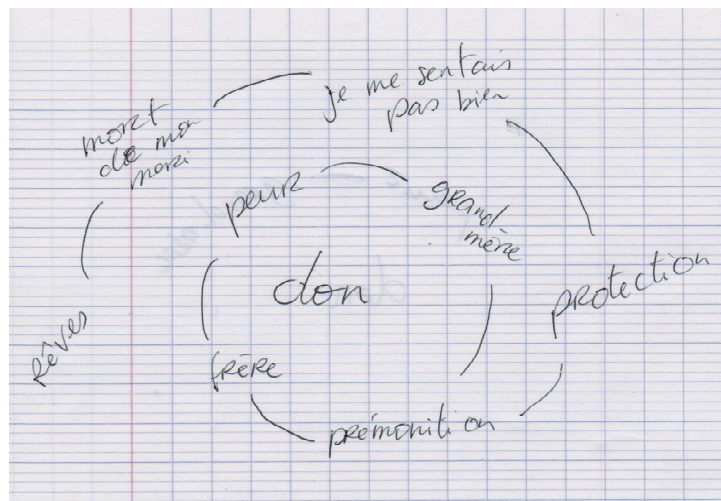 je me sentais
pas bien
mort
de mon
mari
peur
grand-
mère
don
protection
rêves
frère
prémonition